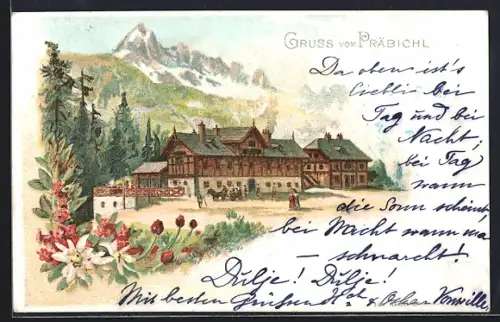 GRUSS VOM PRÄBICHL
Da oben ist's
lieblich bei
Tag und bei
Nacht,
bei Tag
wann
die Sonn scheint
bei Nacht wann ma
– schnarcht!
Dulje! Dulje!
Mit besten Grüssen & Oskar